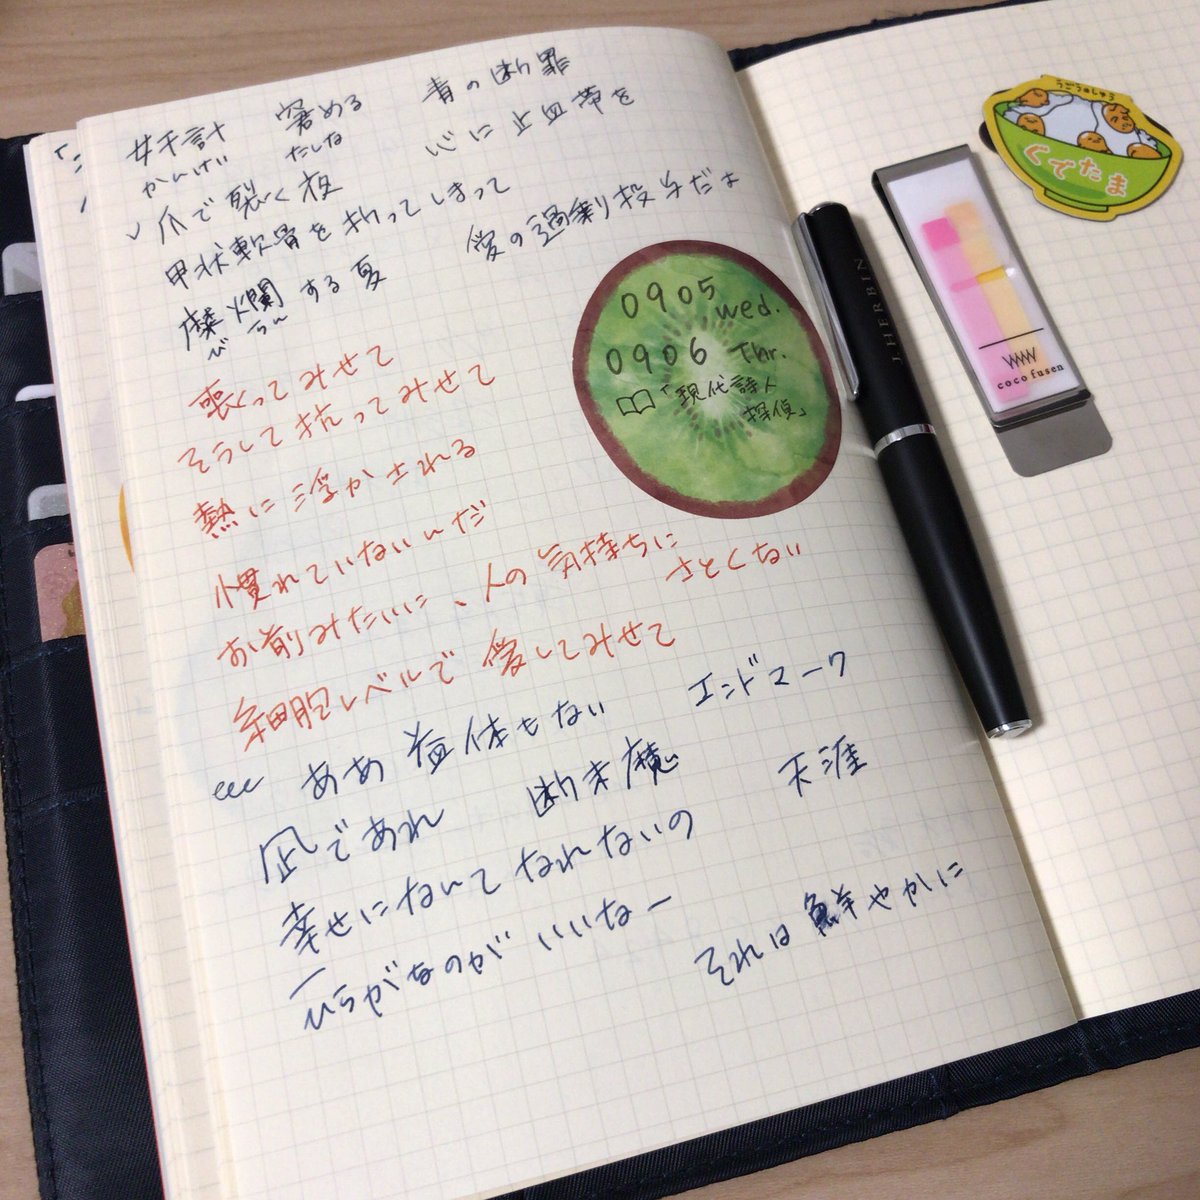 奸計 窘める 青の断罪
かんけい たしな 心に止血帯を
✓爪で裂く夜
甲状軟骨を折ってしまって
糜爛する夏 愛の過剰投与だよ
び らん
喪ってみせて
そうして抗ってみせて
熱に浮かされる
慣れていないんだ
お前みたいに、人の気持ちに
さとくない
細胞レベルで愛してみせて
ああ益体もない エンドマーク
凪であれ 断末魔 天涯
幸せになんてなれないの
ひらがなのがいいなー
それは鮮やかに
0905 wed.
0906 Thr.
「現代詩人
探偵」
J.HERBIN
coco fusen
ぐでたま